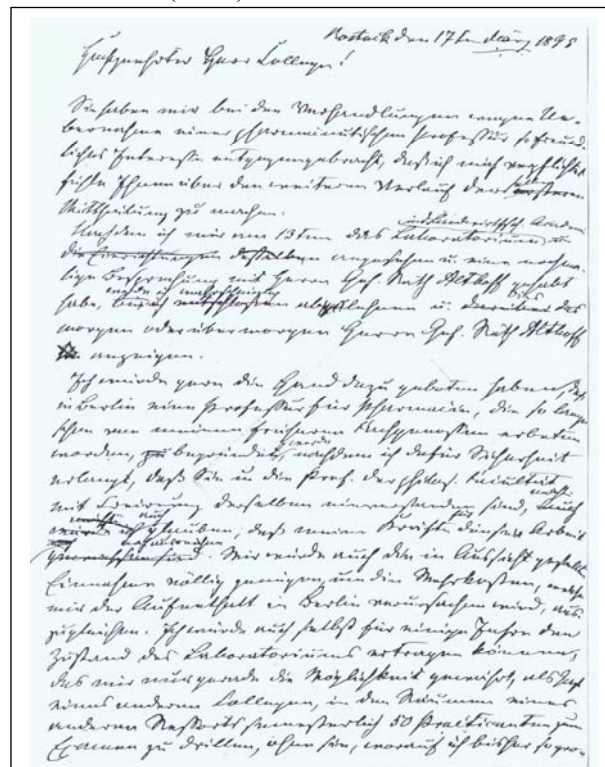 Rostock den 17ten März 1895
Hochgeehrter Herr College!
Sie haben mir bei den Verhandlungen wegen Ue-
bernahme einer pharmaceutischen Professur so freund-
liches Interesse entgegengebracht, daß ich mich verpflichtet
fühle Ihnen über den weiteren Verlauf
Mittheilung zu machen.
landwirthsch. Academ
Nachdem ich mir am 13ten das Laboratorium u
die Einrichtungen desselben angesehen u. eine noch-
malige Besprechung mit Herrn Geh. Rath Althoff gehabt
habe, ablehnen u. dies
morgen oder übermorgen Herrn Geh. Rath Althoff
anzeigen.
Ich würde gern die Hand dazu geboten haben, daß
in Berlin eine Professur für Pharmacie, die so lange
schon von meinen früheren Fachgenossen erbeten
worden, begründet werde, nachdem ich dafür Sicherheit
erlangt, daß Sie u die Prof. der philos. Facultät
mit Creirung derselben einverstanden sind,
auch glauben, daß meine Kräfte für diese Arbeit
ausreichen. Mir würde auch die in Aussicht gestellte
Einnahme völlig genügen, um die Mehrkosten, welche
mir der Aufenthalt in Berlin verursachen wird, aus-
zugleichen. Ich würde auch selbst für einige Jahre den
Zustand des Laboratoriums ertragen können,
das mir nur gerade die Möglichkeit gewährt, als Gast
eines anderen Collegen, in den Räumen eines
anderen Ressorts semesterlich 50 Practicanten zum
Examen zu drillen, ohne sie, worauf ich bisher so gro-